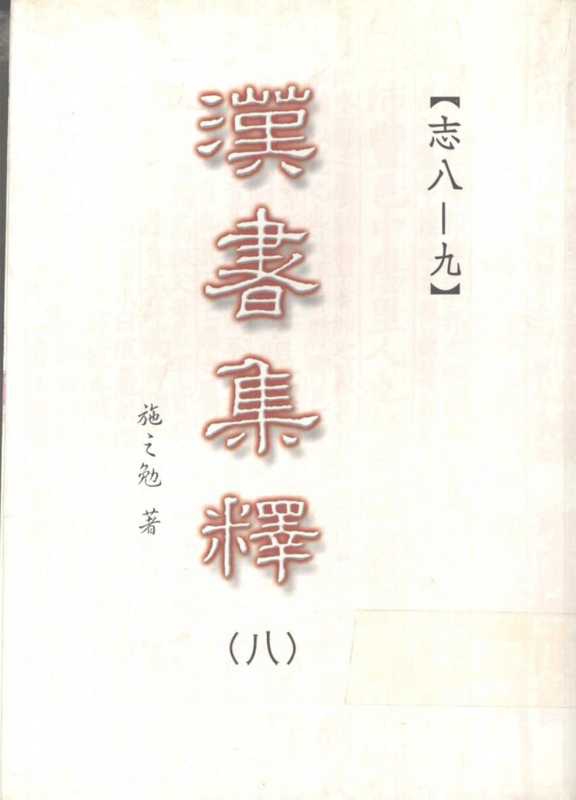 【志八—九】
漢書集釋
（八）
施之勉 著